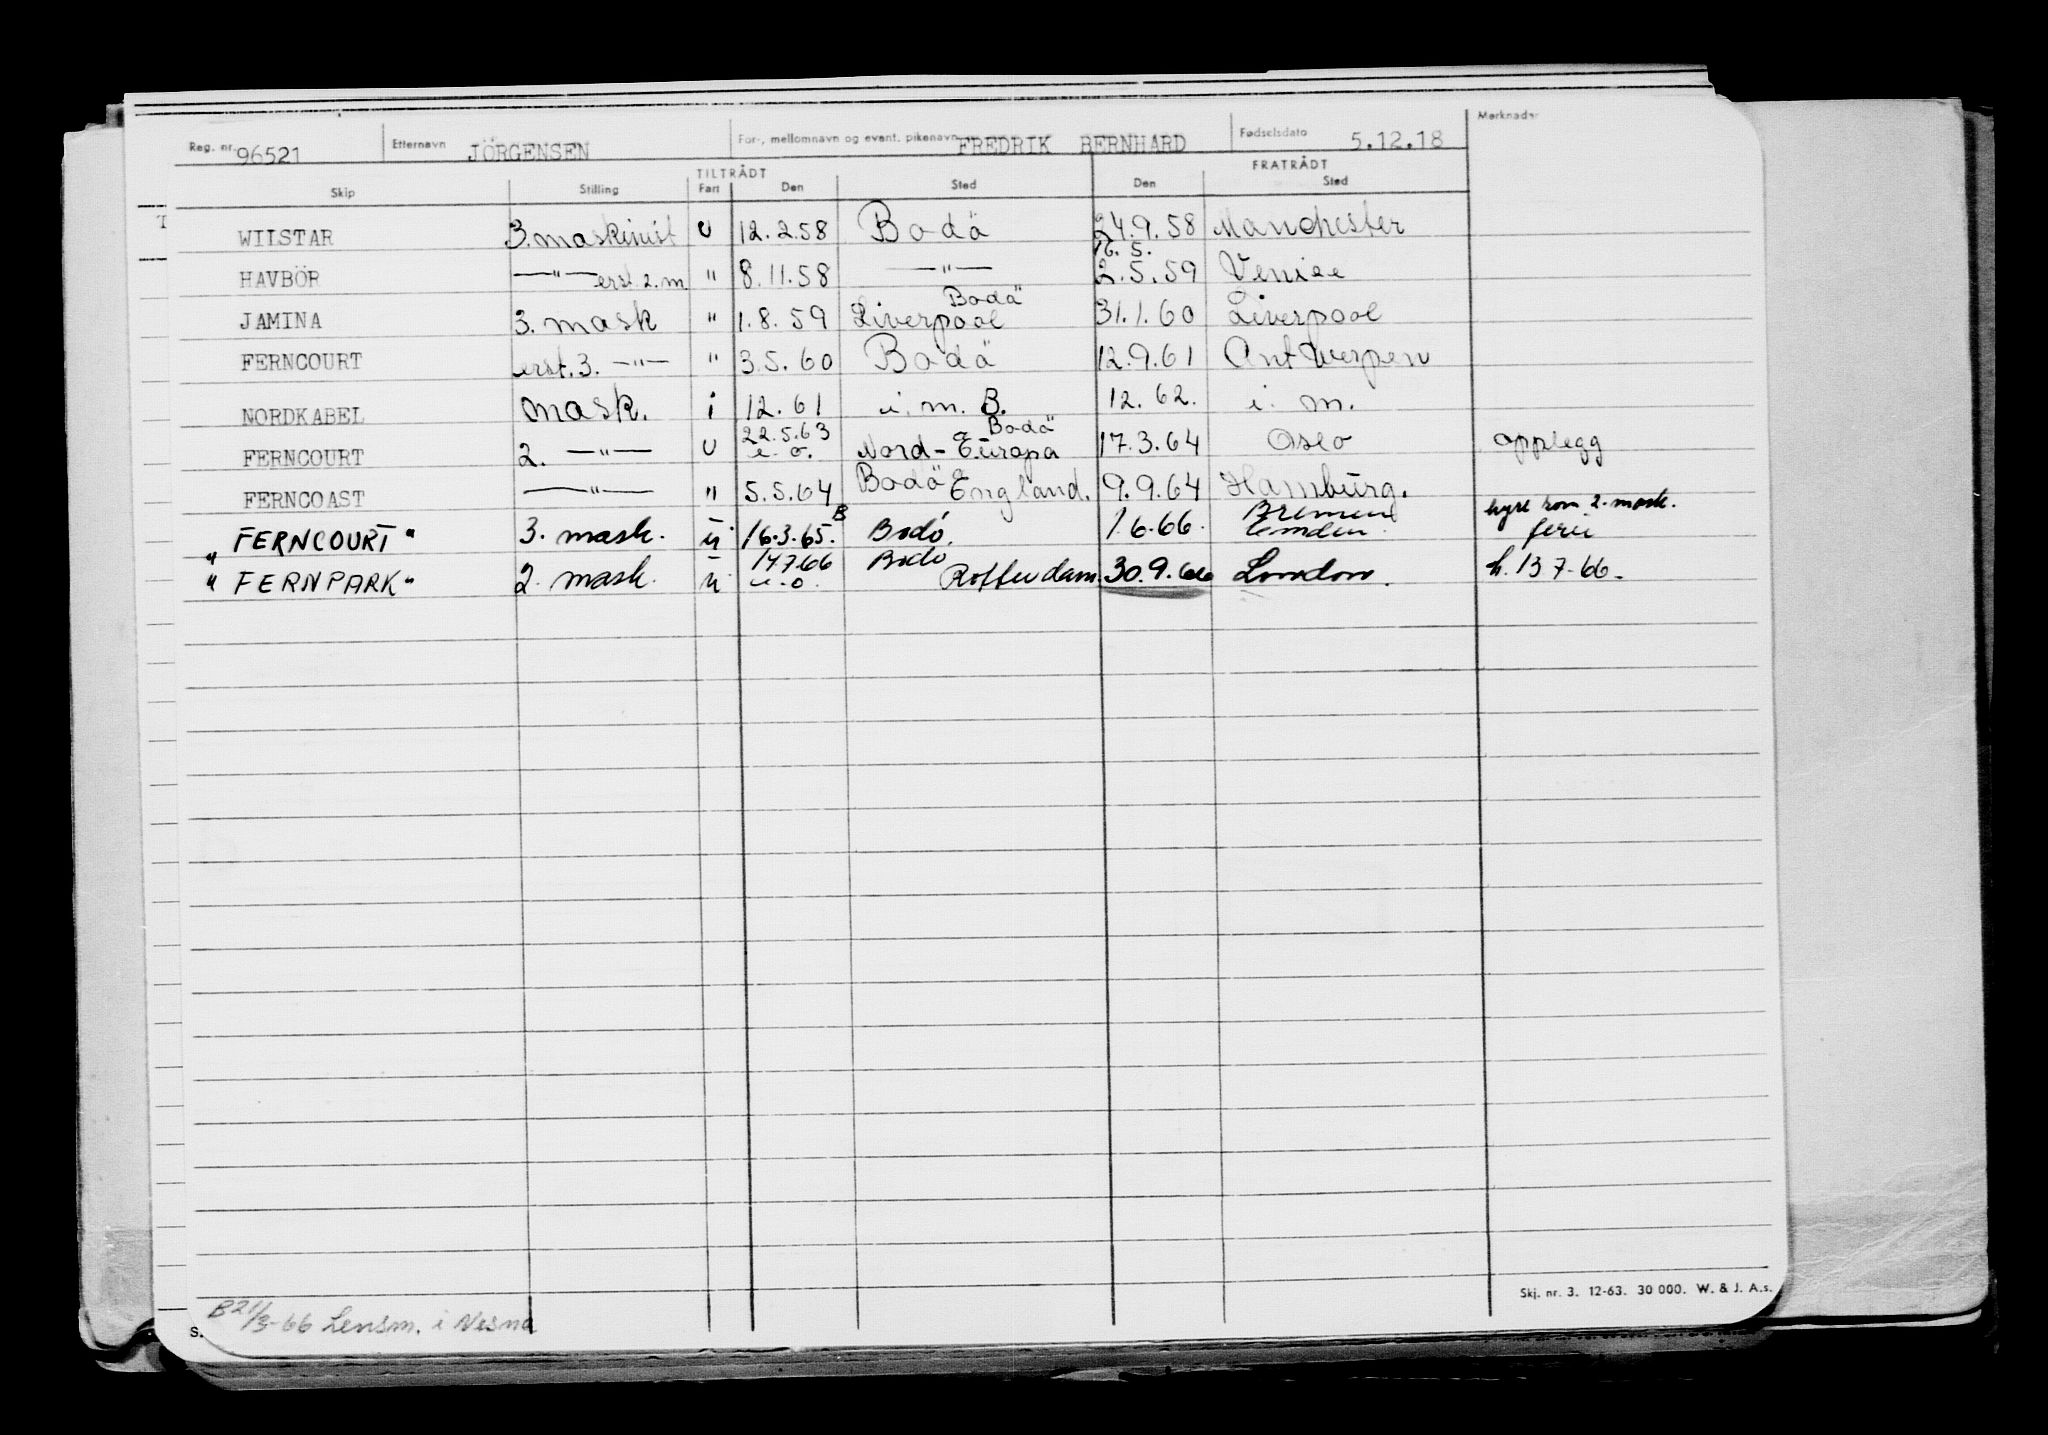 Reg. nr. 96521 Etternavn JÖRGENSEN For-, mellomnavn og event. pikenavn FREDRIK BERNHARD Fødselsdato 5.12.18 Merknader
TILTRÅDT FRATRÅDT
Skip Stilling Fart Den Sted Den Sted
WIISTAR 3. maskinist U 12.2.58 Bodö 24.9.58 Manchester
16.5.
HAVBÖR —"— erst 2.m. " 8.11.58 —"— 2.5.59 Venise
Bodö
JAMINA 3. mask " 1.8.59 Liverpool 31.1.60 Liverpool
FERNCOURT erst. 3. —"— " 3.5.60 Bodö 12.9.61 Antwerpen
NORDKABEL mask. i 12.61 i. m. B. 12.62. i. m.
22.5.63 Bodö
FERNCOURT 2. —"— U e. o. Nord-Europa 17.3.64 Oslo opplegg
FERNCOAST —"— " 5.5.64 Bodö England. 9.9.64 Hamburg.
B Bremen hyre som 2. mask.
"FERNCOURT" 3. mask. u 16.3.65. Bodö. 1.6.66. Emden. ferie
14.7.66 Bodö
"FERNPARK" 2. mask. u e. o. Rotterdam 30.9.66 London. h. 13 7-66.
Skj. nr. 3. 12-63. 30 000. W. & J. A.s.
B 21/3-66 Lensm. i Nesna
S.